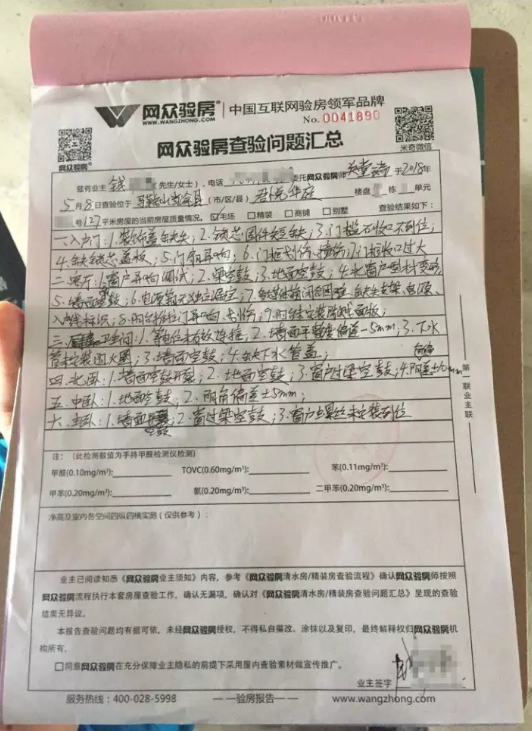 网众验房® 中国互联网验房领军品牌
WANGZHONG No. 0041890
网众验房查验问题汇总 米奇微信
兹有业主 钱 (先生/女士), 电话 委托网众验房师 于2018年
5月8日查验位于 马鞍山当涂县 (市/区/县) 君悦华庭 楼盘 栋 单元
号127平米房屋的当前房屋质量情况。☑毛坯 □精装 □商铺 □别墅 查验结果如下:
一入户门:1.装饰盖缺失;2.锁芯固件短缺;3.门槛石收口不到位;
4.缺锁芯盖板;5.门扇异响;6.门框划伤、撞伤;7.门框收口过大
二.客厅:1.窗户异响调试;2.梁空鼓;3.地面空鼓;4.
5.墙面空鼓;6.
入户线标识;8.
三. 卫生间:1.等电位未有效连接;2.墙面平整度偏差-5mm;3.下水
管 ;3.墙面空鼓;4.缺下水管盖;
四.北卧:1.墙面空鼓开裂;2.地面空鼓;3.窗户过梁空鼓;4.阴角偏差±10mm
五.中卧:1.地面空鼓;2.阴角偏差±5mm;
六.主卧:1.墙面空鼓;2.窗过梁空鼓;3.窗户 螺丝未安装到位
第一联业主联
注:(此检测数值为手持甲醛检测仪检测)
甲醛(0.10mg/m³): TOVC(0.60mg/m³): 苯(0.11mg/m³):
甲苯(0.20mg/m³): 氨(0.20mg/m³): 二甲苯(0.20mg/m³):
净高及室内各空间四纵四横实测(仅供参考):
业主已阅读知悉《网众验房业主须知》内容,参考《网众验房清水房/精装房查验流程》确认网众验房师按照
网众验房流程执行本套房屋查验工作,确认无漏项。确认对《网众验房清水房/精装房查验问题汇总》呈现的查验
结果无异议。
本报告查验问题均有据可依,未经网众验房授权,不得私自篡改、涂抹以及复印,最终解释权归网众验房机
构所有。
□同意网众验房在充分保障业主隐私的前提下采用屋内查验素材做宣传推广。
业主签字
服务热线:400-028-5998 —验房报告— www.wangzhong.com